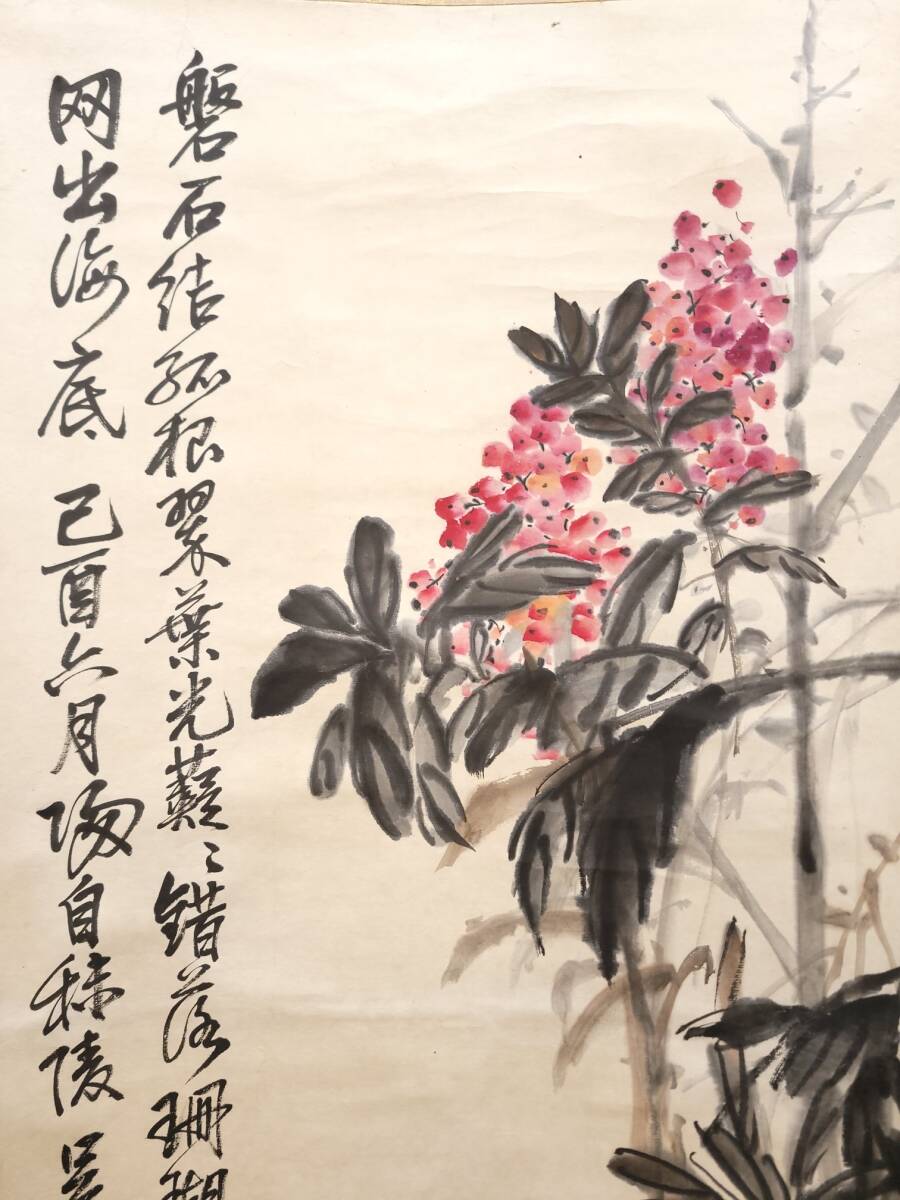 磐石结孤根翠葉光蕤〻錯落珊瑚
网出海底 己酉六月归自秣陵 吴